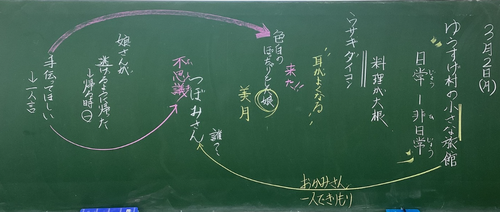 3月2日(月)
ゆうすげ村の小さな旅館
日常ー非日常
じょう
ひ
じょう
料理が大根
ウサギダイコン
「耳がよくなる」
来た!!
色白の
ぽっちゃりとした娘
美月
誰?
つぼみさん
不思議
娘さんが、
逃げるように帰った
↓帰る時
手伝ってほしい
↓一人言
おかみさん
一人できりもり